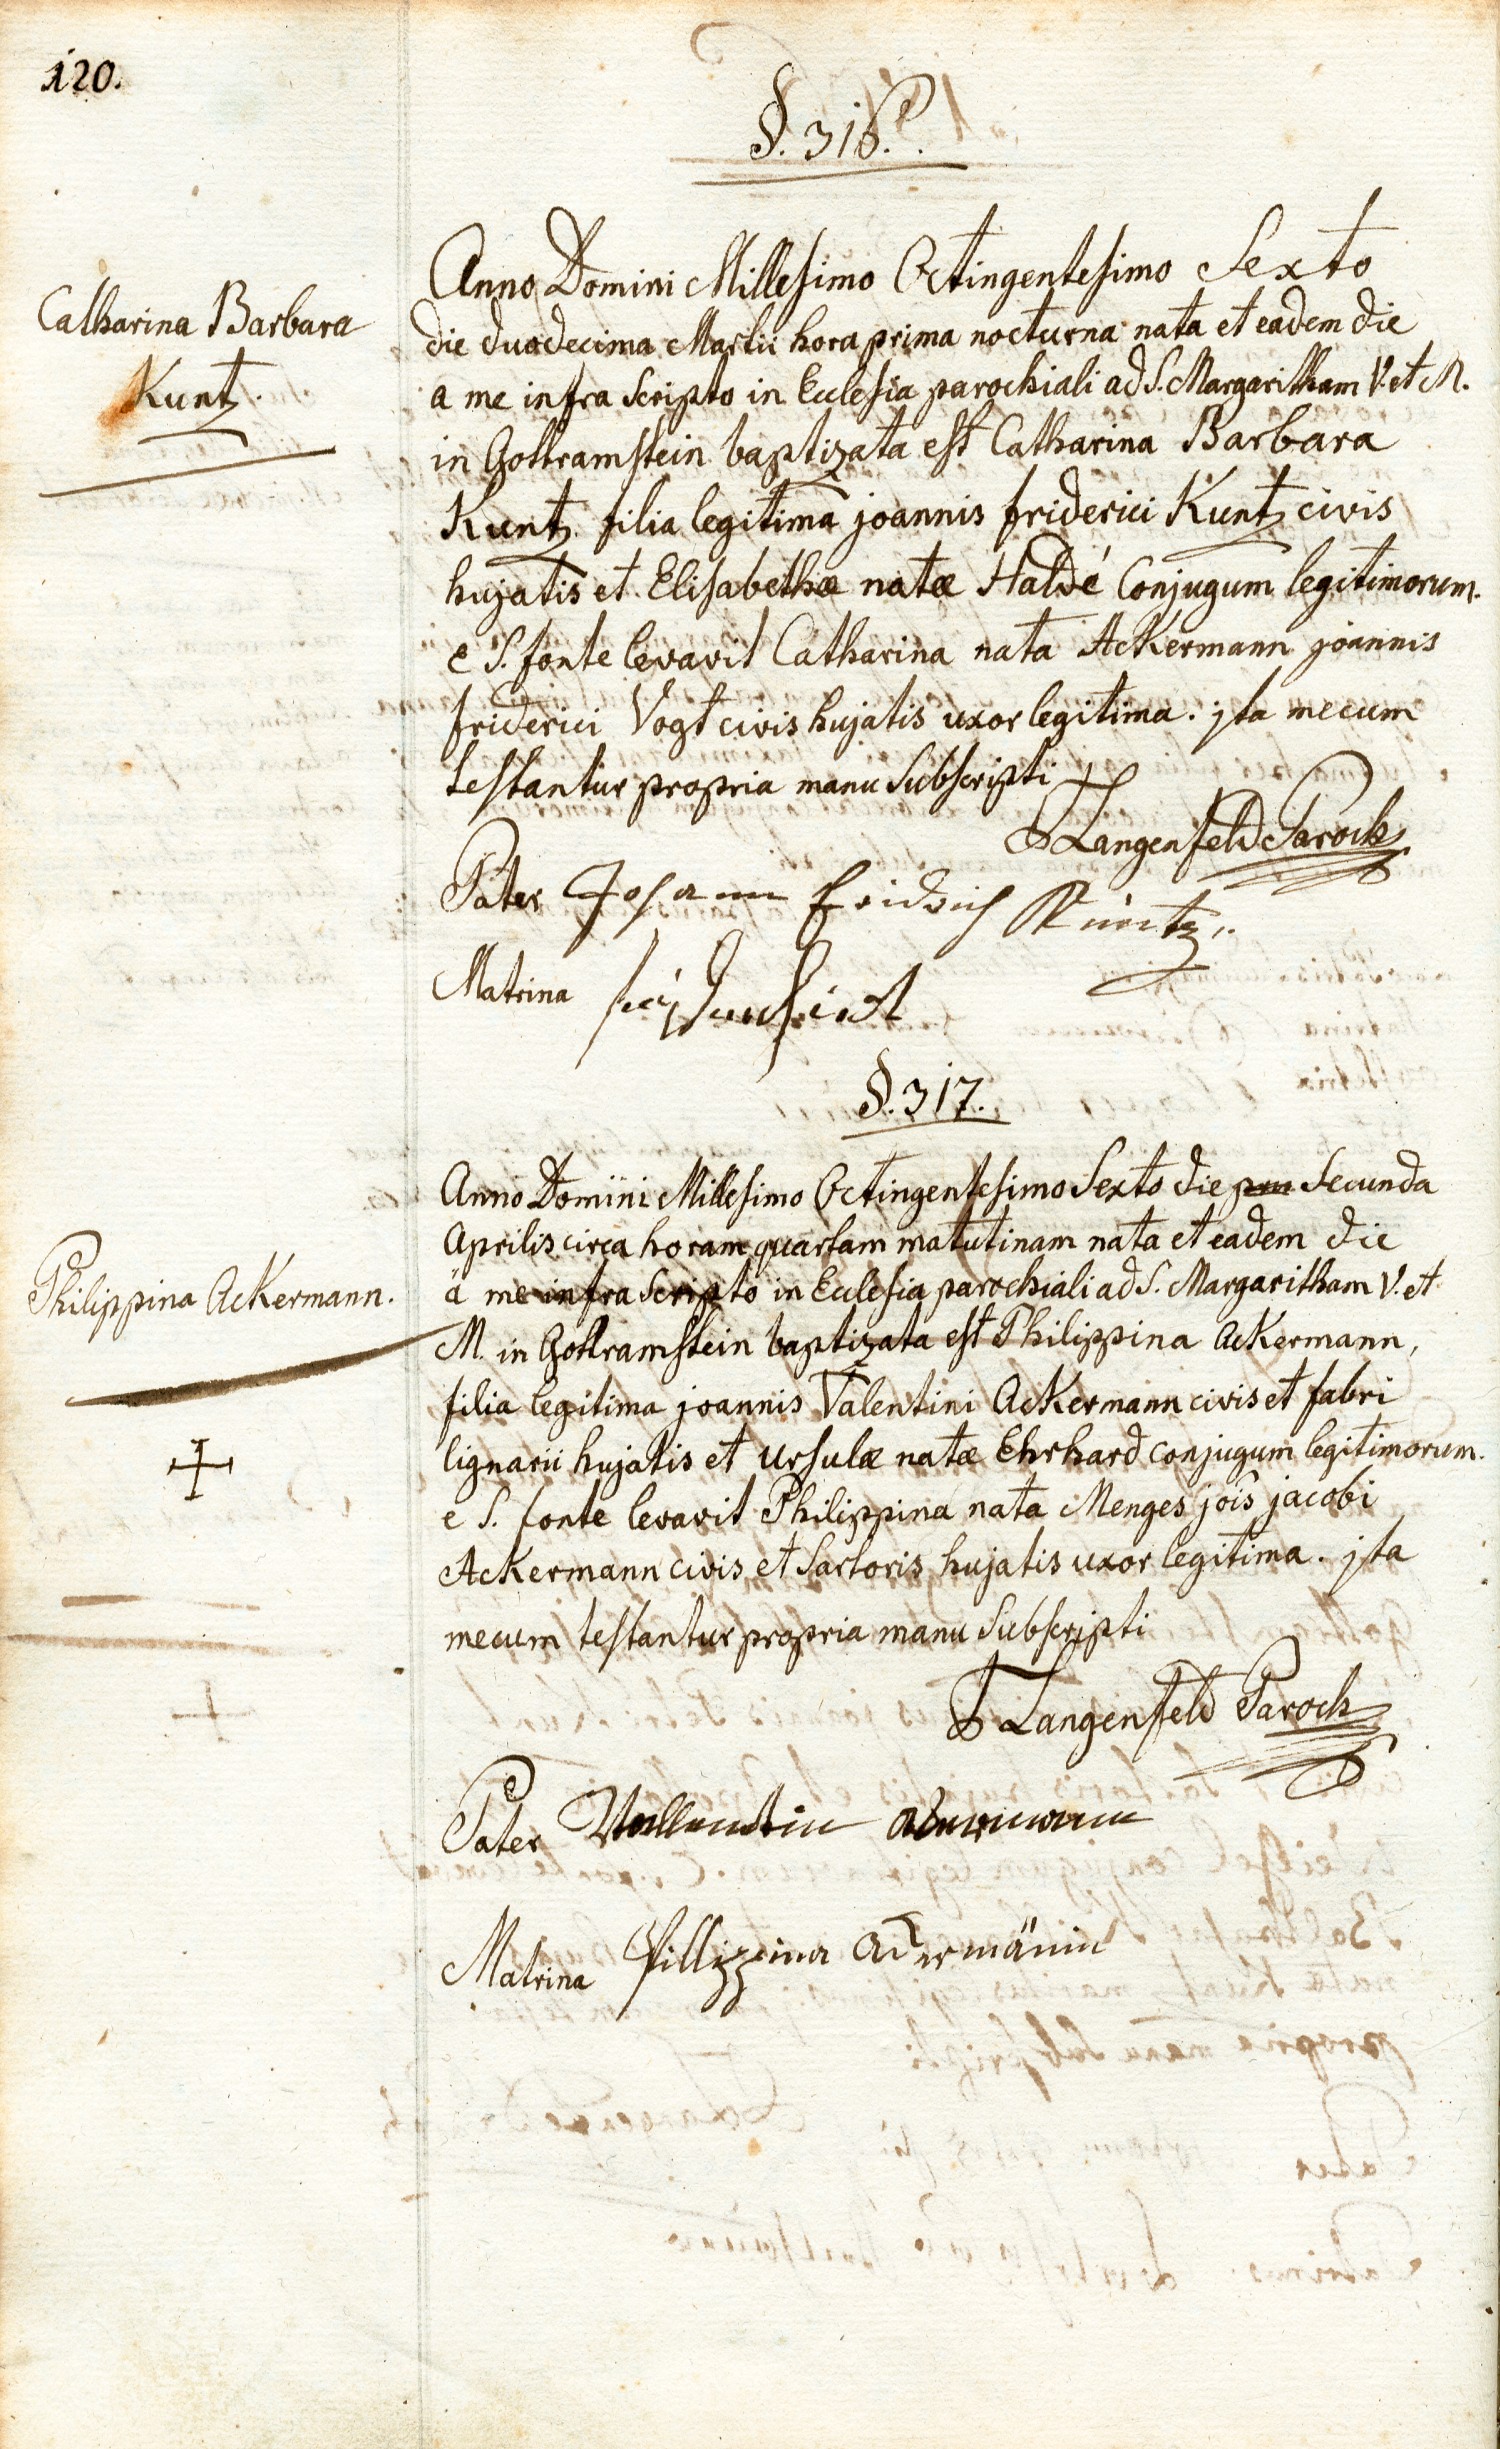 120.
§. 316.
Catharina Barbara
Kuntz.
Anno Domini Millesimo Octingentesimo Sexto
die duodecima Martii hora prima nocturna nata et eadem die
a me infra Scripto in Ecclesia parochiali ad S. Margaritham V. et M.
in Gottramstein baptizata est Catharina Barbara
Kuntz. filia legitima joannis friderici Kuntz civis
hujatis et Elisabethæ natæ Haldé Conjugum legitimorum.
e S. fonte levavit Catharina nata Ackermann joannis
friderici Vogt civis hujatis uxor legitima. jta mecum
testantur propria manu Subscripti
Langenfeld Paroch
Pater Johann fridrich Kuntz
Matrina
§. 317.
Philippina Ackermann.
Anno Domini Millesimo Octingentesimo Sexto die Secunda
Aprilis circa horam quartam matutinam nata et eadem die
à me infra Scripto in Ecclesia parochiali ad S. Margaritham V. et
M. in Gottramstein baptizata est Philippina Ackermann,
filia legitima joannis Valentini Ackermann civis et fabri
lignarii hujatis et Ursulæ natæ Ehrhard conjugum legitimorum.
e S. fonte levavit Philippina nata Menges jois jacobi
Ackermann civis et Sartoris hujatis uxor legitima. jta
mecum testantur propria manu Subscripti
Langenfeld Paroch
Pater Vallentin ackermann
Matrina fillippina ackermänin